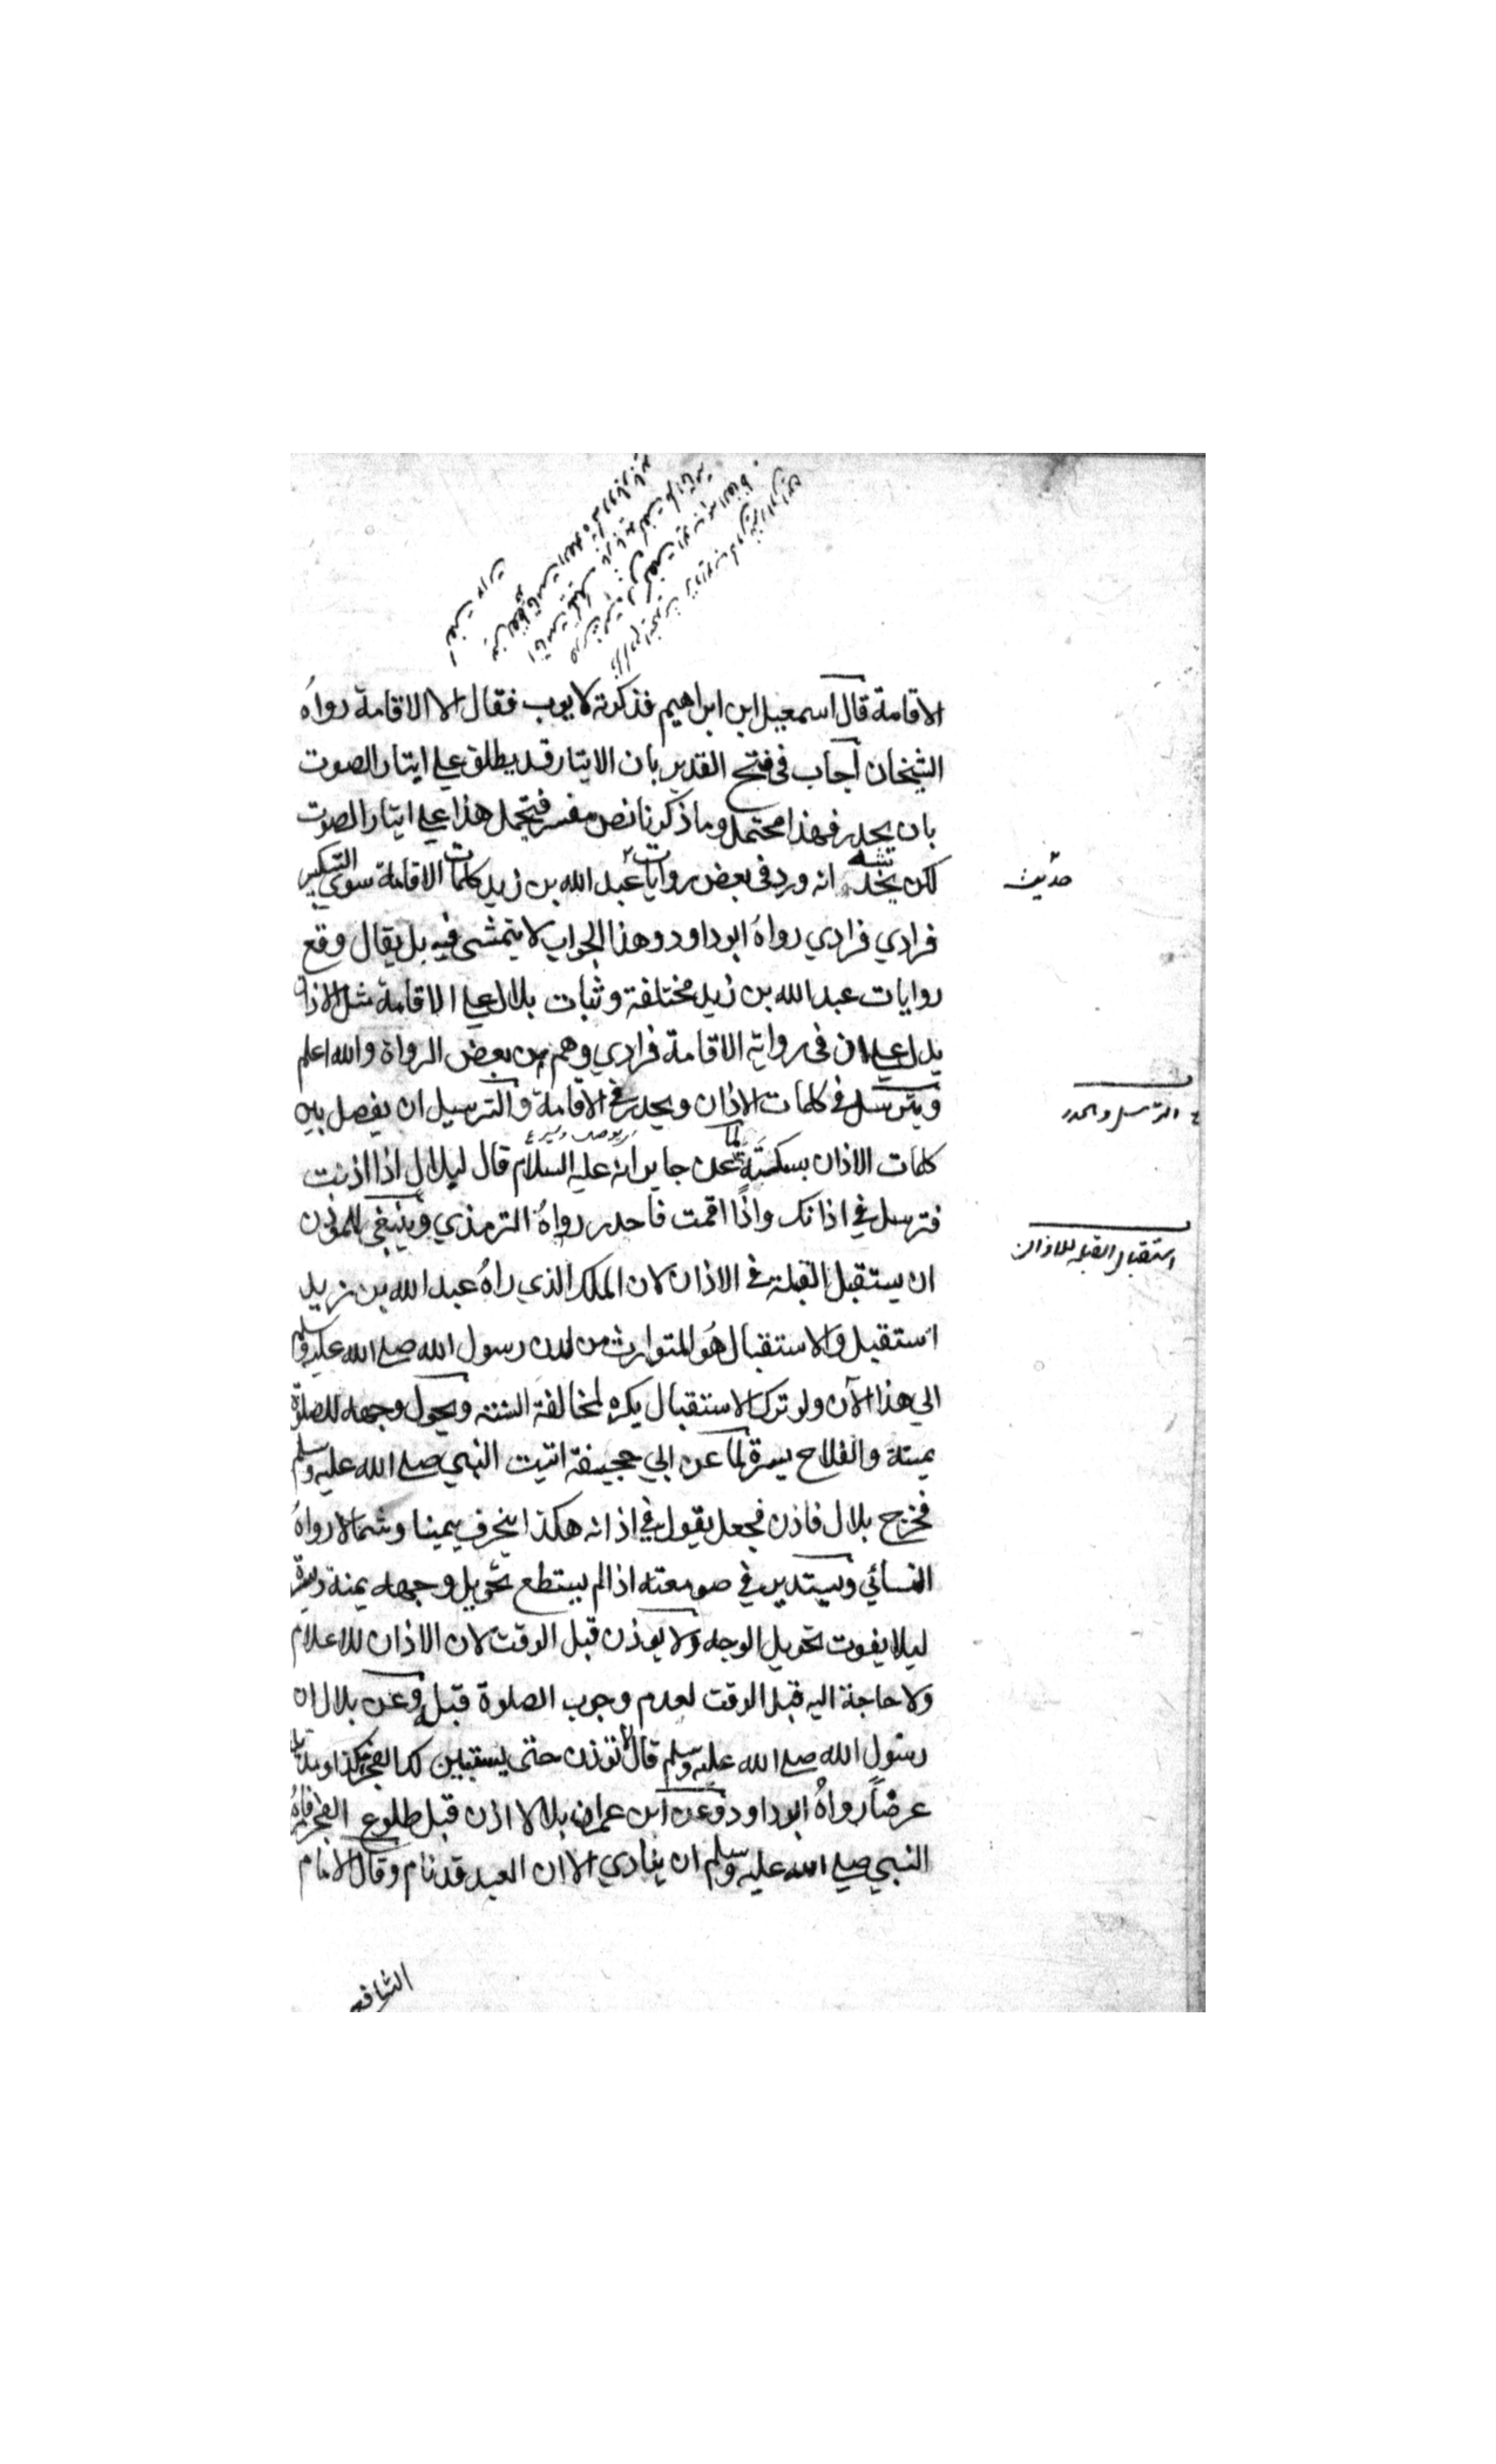 الاقامة قال اسمعيل ابن ابراهيم فذكرته لايوب فقال الا الاقامة رواه
الشيخان اجاب فى فتح القدير بان الايتار قد يطلق علي ايتار الصوت
بان يحدر فهذا محتمل وما ذكرنا نص مفسر فتحمل هذا علي ايتار الصوت
لكن يخدشه انه ورد فى بعض روايات عبد الله بن زيد كلمات الاقامة سوي التكبير
فرادي فرادي رواه ابو داود وهذا الجواب لا يتمشى فيه بل يقال وقع
روايات عبد الله بن زيد مختلفة وثبات بلال علي الاقامة مثل الاذان
يدل علي ان فى رواية الاقامة فرادي وهم من بعض الرواة والله اعلم
ويترسل في كلمات الاذان ويحدر في الاقامة والترسيل ان يفصل بين
كلمات الاذان بسكتة لما عن جابر انه عليه السلام قال لبلال اذا اذنت
فترسل في اذانك واذا اقمت فاحدر رواه الترمذي وينبغي للموذن
ان يستقبل القبلة فى الاذان لان الملك الذي راه عبد الله بن زيد
استقبل والاستقبال هو المتوارث من لدن رسول الله صلي الله عليه وسلم
الي هذا الآن ولو ترك الاستقبال يكره لمخالفة السنة ويحول وجهه للصلوة
يمنة والفلاح يسرة لما عن ابي جحيفة اتيت النبي صلي الله عليه وسلم
فخرج بلال فاذن فجعل يقول في اذانه هكذا ينحرف يمينا وشمالا رواه
النسائي ويستدير في صومعته اذا لم يستطع تحويل وجهه يمنة ويسرة
ليلا يفوت تحويل الوجه ولا يوذن قبل الوقت لان الاذان للاعلام
ولا حاجة اليه قبل الوقت لعدم وجوب الصلوة قبله وعن بلال ان
رسول الله صلي الله عليه وسلم قال لا توذن حتى يستبين لك الفجر هكذا ومد يديه
عرضا رواه ابو داود وعن ابن عمر ان بلالا اذن قبل طلوع الفجر فامره
النبي صلي الله عليه وسلم ان ينادي الا ان العبد قد نام وقال الامام
الشافعي
حديث
الترسل والحدر
استقبال القبلة للاذان